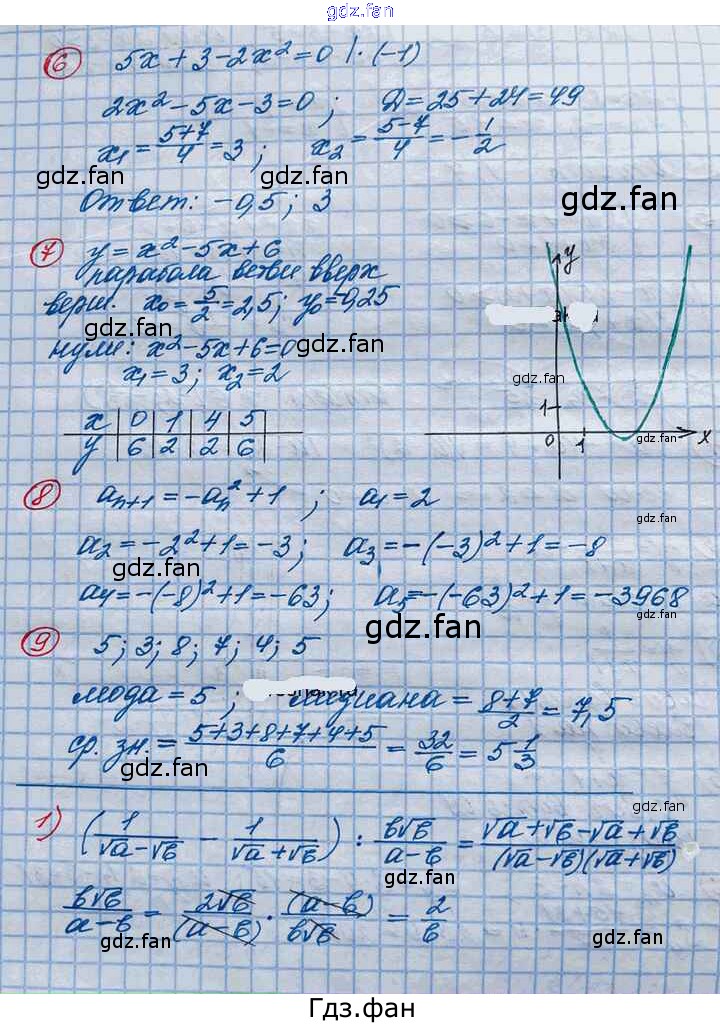 gdz.fan
gdz.fan
6 5x + 3 - 2x² = 0 | · (-1)
2x² - 5x - 3 = 0 ; Д = 25 + 24 = 49
x₁ = (5+7)/4 = 3 ; x₂ = (5-7)/4 = -1/2
gdz.fan gdz.fan gdz.fan
Ответ: -0,5 ; 3
7 y = x² - 5x + 6
парабола ветви вверх
верш. x₀ = 5/2 = 2,5 ; y₀ = -0,25
gdz.fan
нули: x² - 5x + 6 = 0
gdz.fan
x₁ = 3 ; x₂ = 2
x | 0 | 1 | 4 | 5
y | 6 | 2 | 2 | 6
y
gdz.fan
1
0 1 x
gdz.fan
8 aₙ₊₁ = -aₙ² + 1 ; a₁ = 2
gdz.fan
a₂ = -2² + 1 = -3 ; a₃ = -(-3)² + 1 = -8
gdz.fan
a₄ = -(-8)² + 1 = -63 ; a₅ = -(-63)² + 1 = -3968
gdz.fan
9 5 ; 3 ; 8 ; 7 ; 4 ; 5
мода = 5 ; медиана = (8+7)/2 = 7,5
gdz.fan
ср. зн. = (5+3+8+7+4+5)/6 = 32/6 = 5 1/3
gdz.fan
gdz.fan
1) (1/(√a-√b) - 1/(√a+√b)) : b√b/(a-b) = (√a+√b-√a+√b)/((√a-√b)(√a+√b)) :
gdz.fan
b√b/(a-b) = 2√b/(a-b) · (a-b)/(b√b) = 2/b
gdz.fan gdz.fan
Гдз.фан